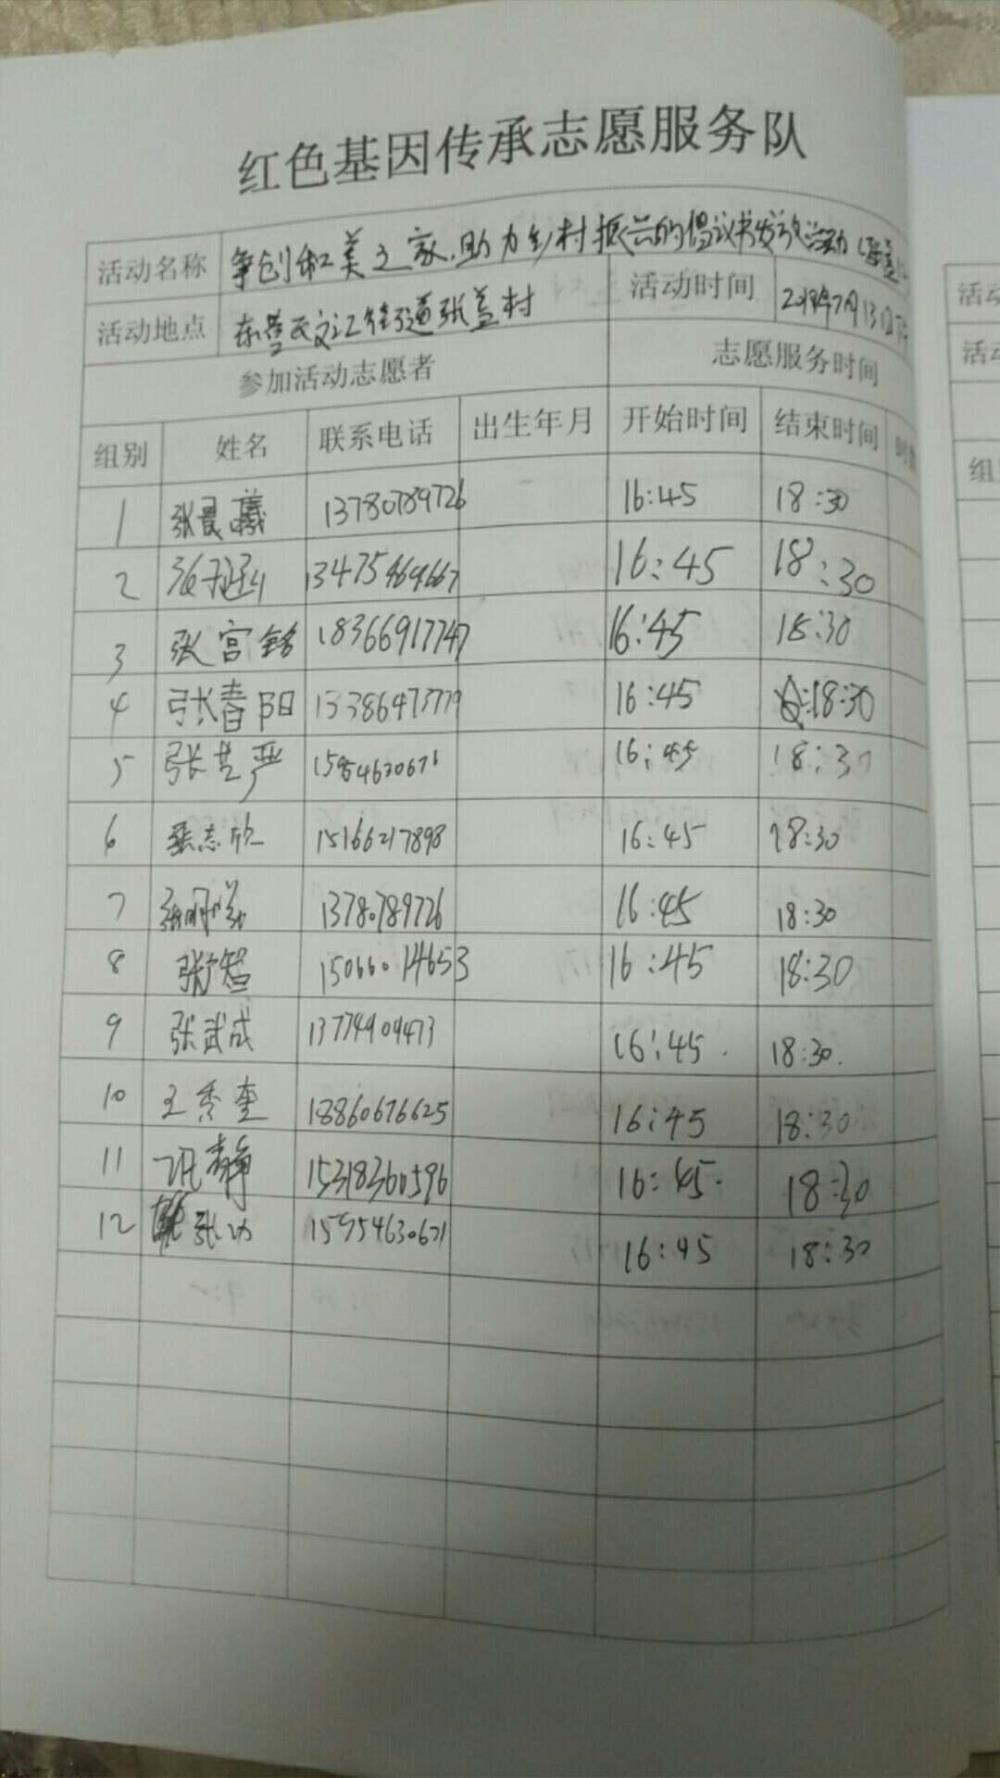 红色基因传承志愿服务队
活动名称 争创和美之家,助力乡村振兴的倡议书发放活动
活动地点 东营区文汇街道张盖村 活动时间 7月13日
参加活动志愿者 志愿服务时间
组别 姓名 联系电话 出生年月 开始时间 结束时间
1 张晨曦 13780789726 16:45 18:30
2 13475469667 16:45 18:30
3 张宫铭 18366917747 16:45 18:30
4 张春阳 13386473779 16:45 18:30
5 张芝严 15954630671 16:45 18:30
6 张志欣 15166217898 16:45 18:30
7 13780789726 16:45 18:30
8 张智 15066014653 16:45 18:30
9 张武成 13774909473 16:45 18:30
10 王秀奎 18860676625 16:45 18:30
11 静 15318360596 16:45 18:30
12 张 15954630671 16:45 18:30
活动
活动
组